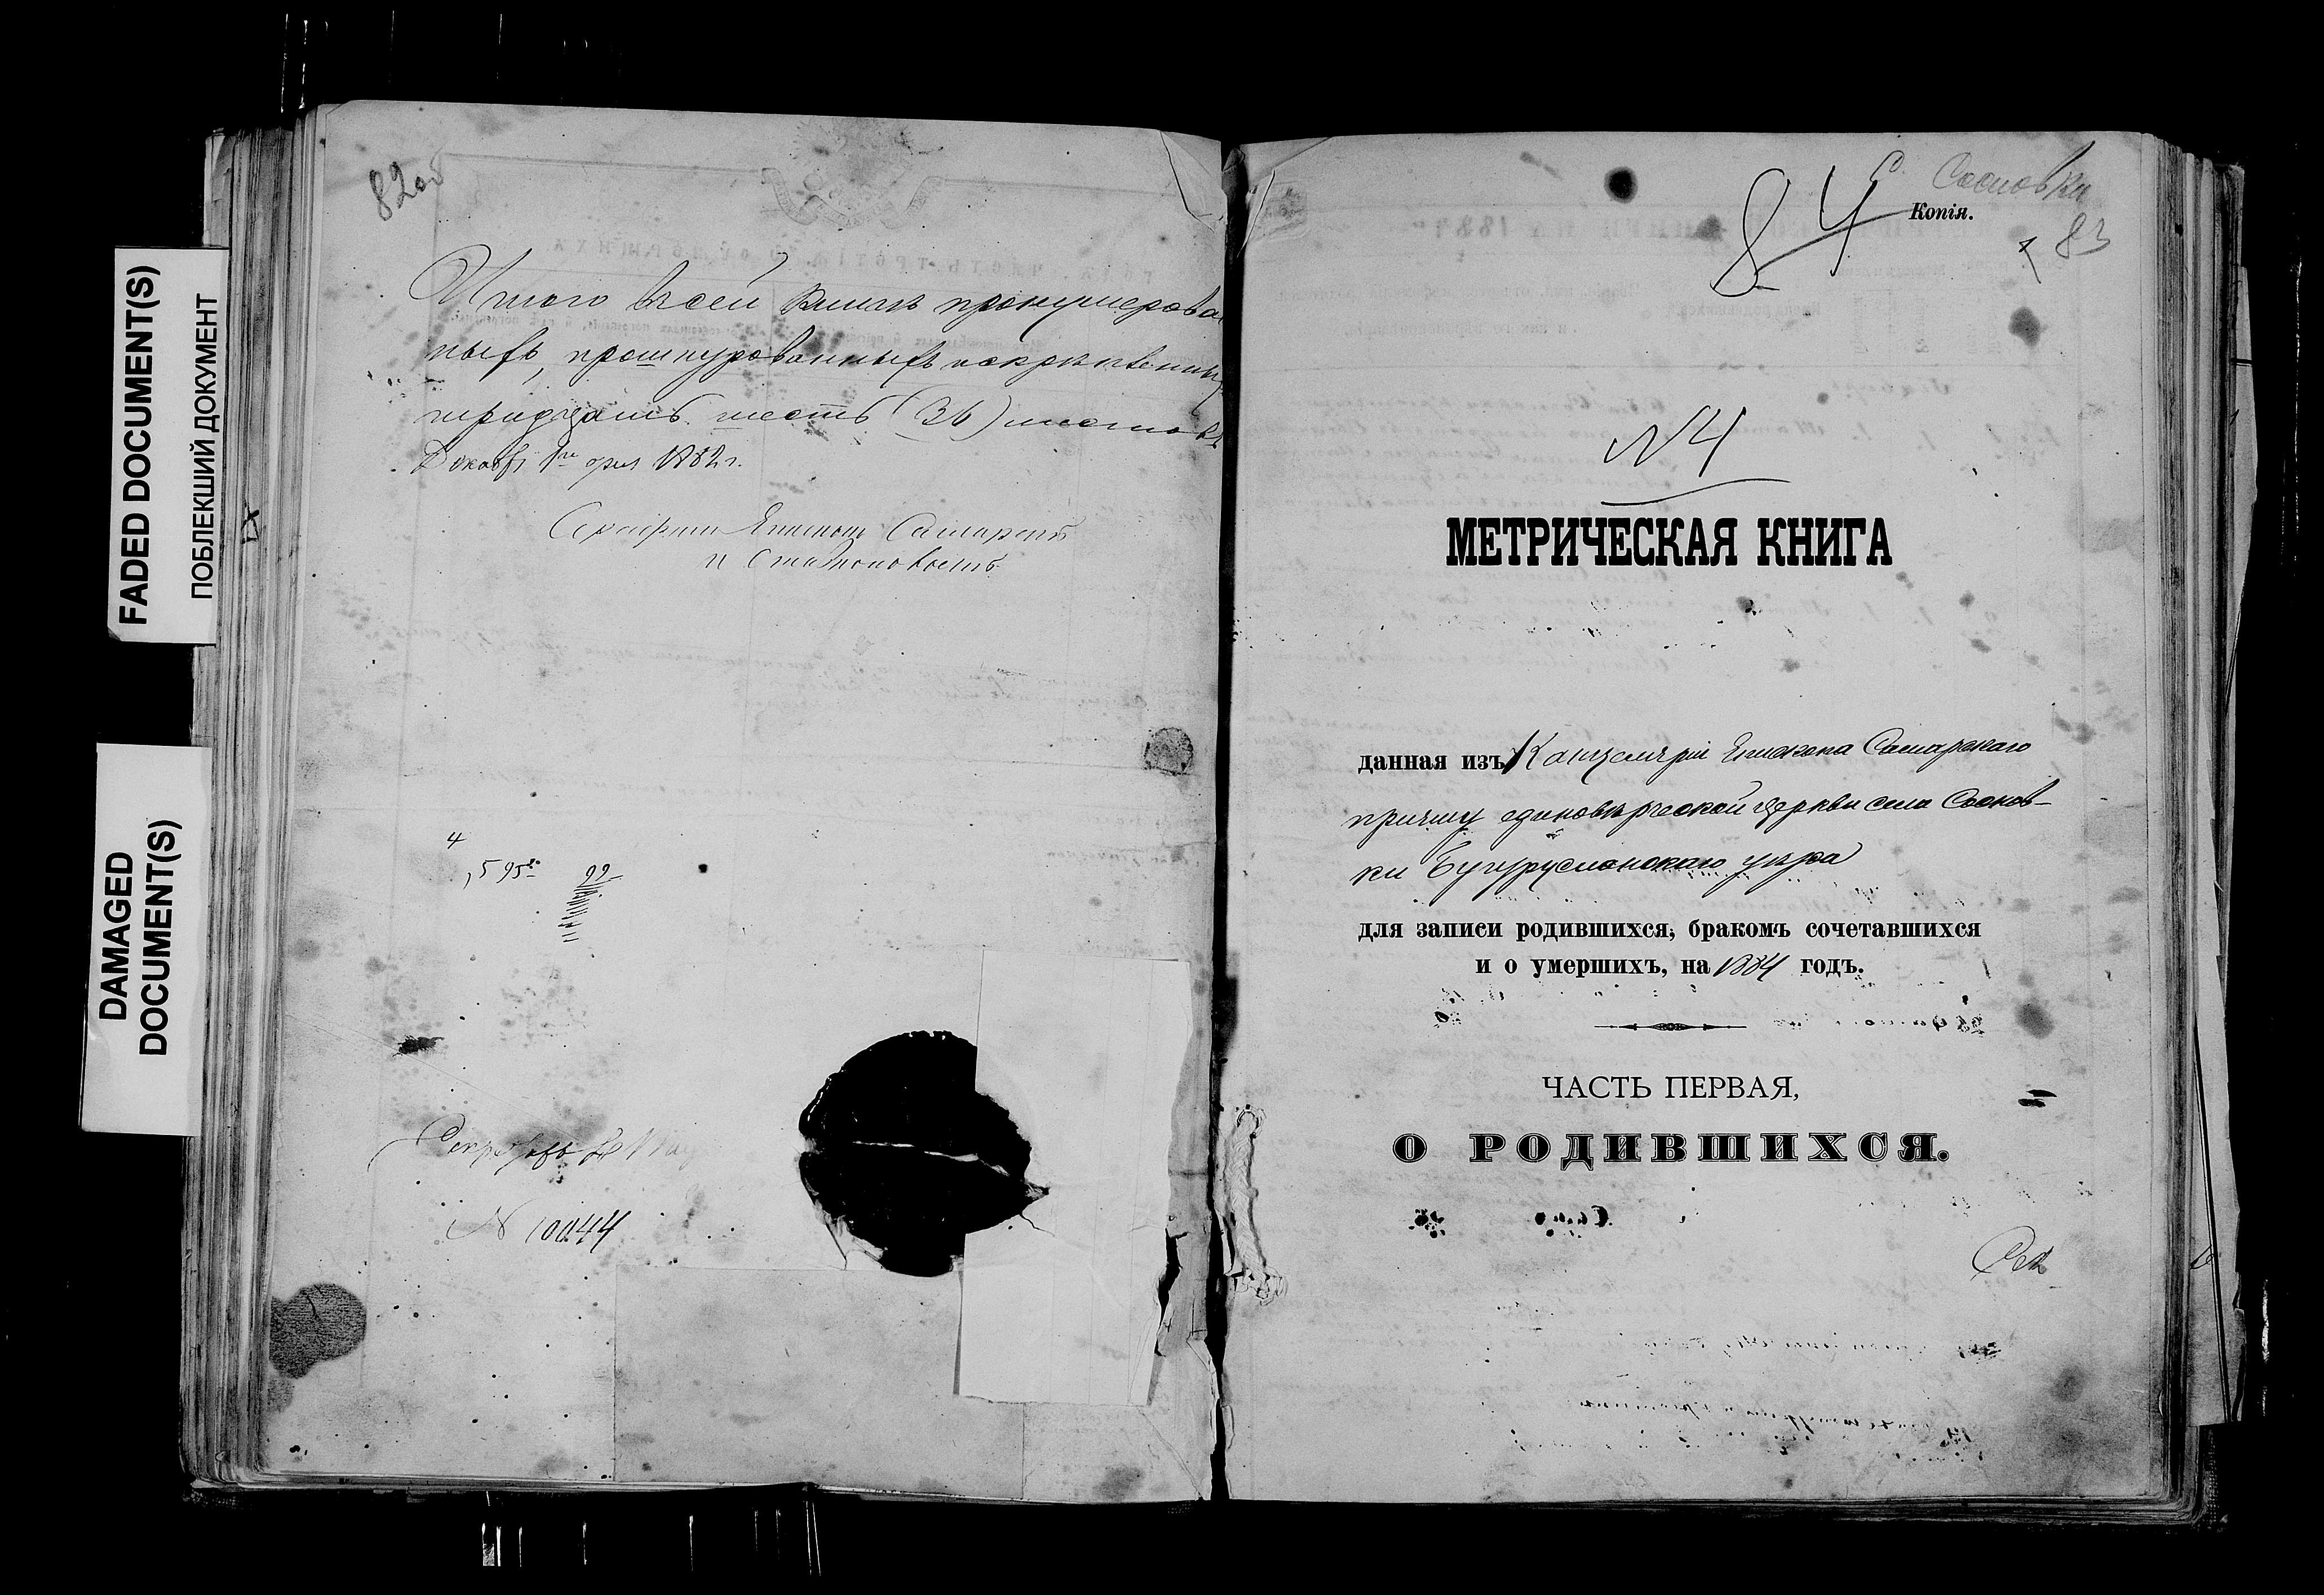 FADED DOCUMENT(S)
ПОБЛЕКШИЙ ДОКУМЕНТ
DAMAGED
DOCUMENT(S)
82об
Итого въ сей книгѣ пронумерован
ныхъ, прошнурованныхъ и скрѣпленныхъ
тридцать шесть (36) листовъ
Декабря 1го дня 1882 г.
Серафимъ Епископъ Самарскій
и Ставропольскій
4
595
99
Секретарь
N 10044
С. Сосновки
84
Копія.
83
N 4
МЕТРИЧЕСКАЯ КНИГА
данная изъ Канцеляріи Епископа Самарскаго
причту единовѣрческой церкви села Соснов-
ки Бугурусланскаго уѣзда
для записи родившихся, бракомъ сочетавшихся
и о умершихъ, на 1884 годъ.
ЧАСТЬ ПЕРВАЯ,
О РОДИВШИХСЯ.